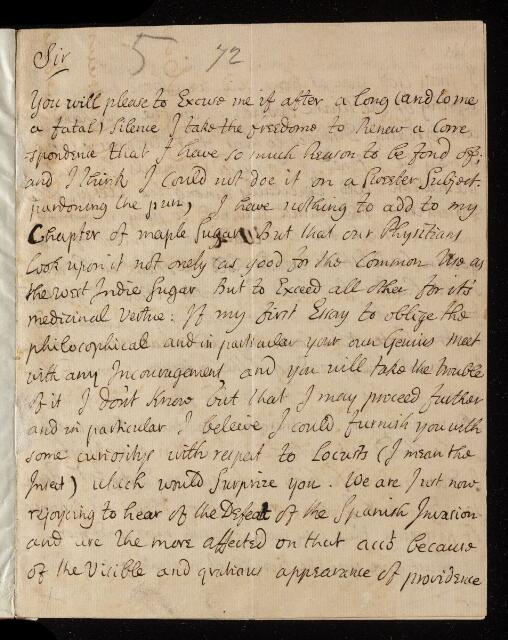 Sir 5 72
You will please to Excuse me if after a long (and to me
a fatal) silence I take the freedome to Renew a Corre
spondence that I have so much Reason to be fond off:
and I think I could not doe it on a Sweeter Subject.
pardoning the pun, I have nothing to add to my
Chapter of maple Sugar But that our Physitians
look upon it not onely as good for the Common Use as
the west Indie Sugar But to Exceed all other for its
medicinal Vertue: If my first Essay to oblige the
philosophical and in particular your own Genius meet
with any Incouragement, and you will take the trouble
of it I don't Know but that I may proceed further
and in particular I beleive I could furnish you with
some curiositys with respect to Locusts (I mean the
Insect) which would Surprize you. We are Just now
rejoycing to hear of the Defeat of the Spanish Invasion
and are the more affected on that acct because
of the Visible and gratious appearance of providence